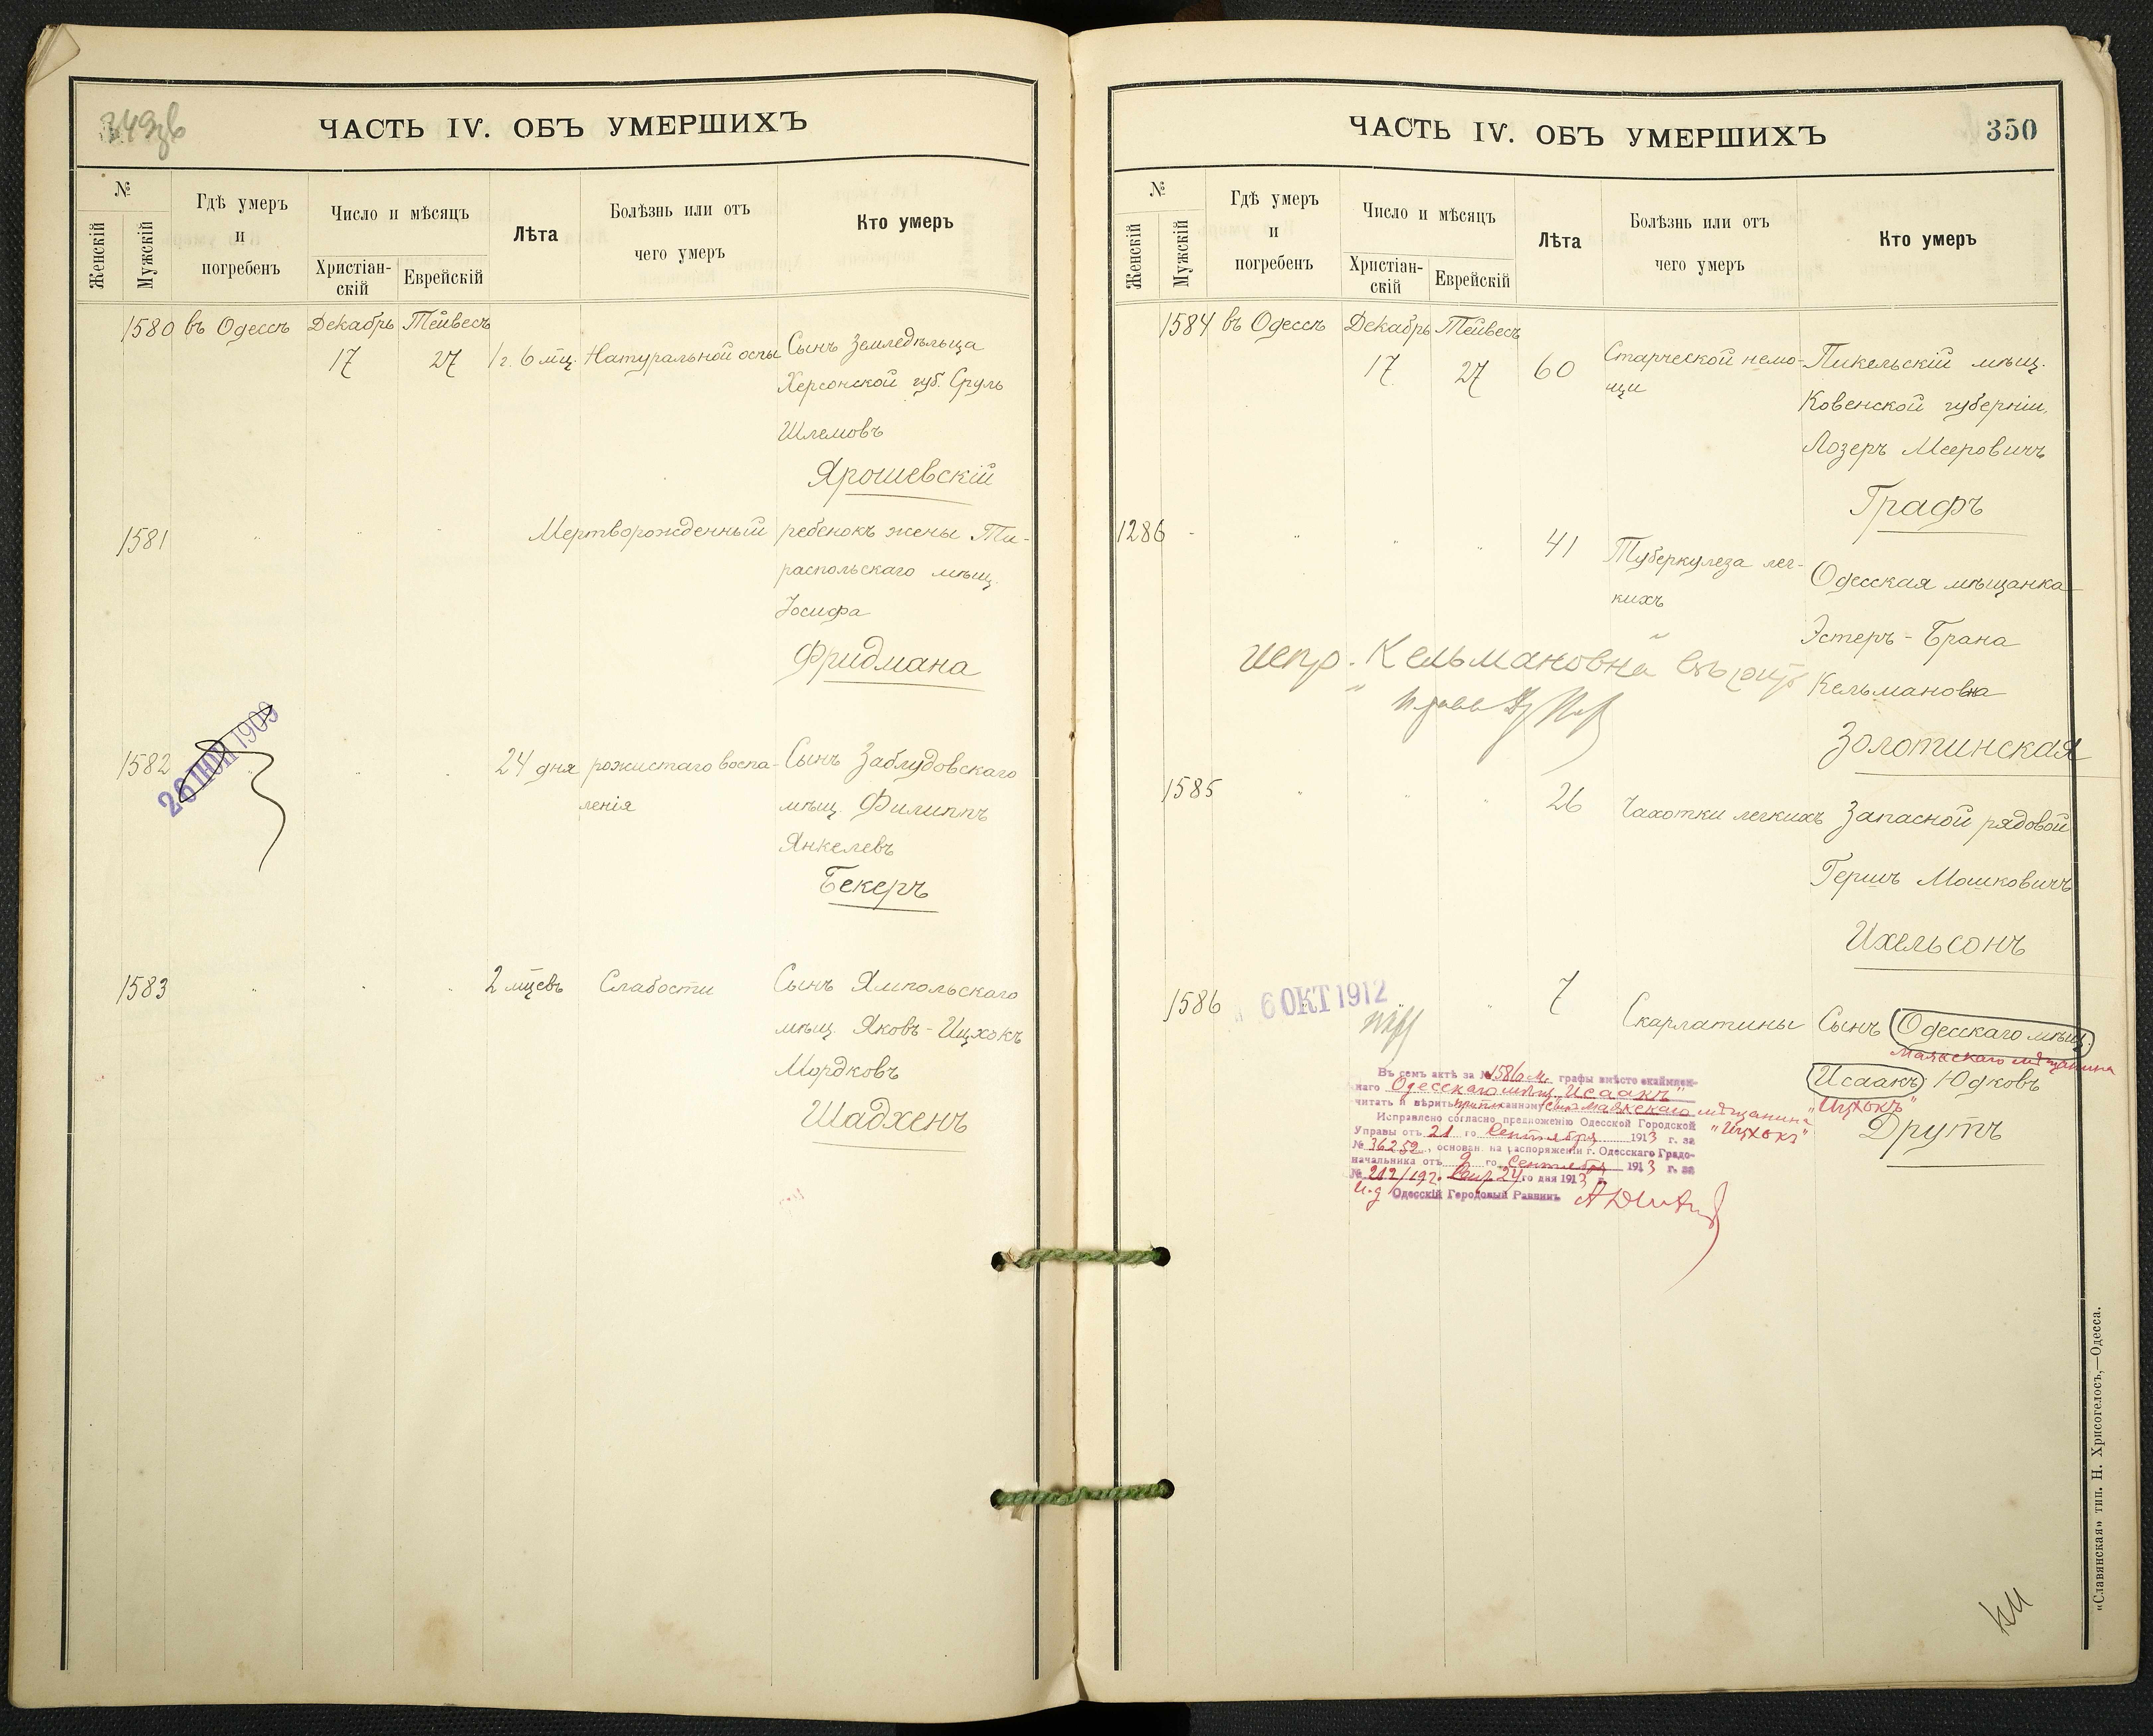 ЧАСТЬ IV. ОБЪ УМЕРШИХЪ
№
Женскій
Мужскій
Гдѣ умеръ
и
погребенъ
Число и мѣсяцъ
Христіан-
скій
Еврейскій
Лѣта
Болѣзнь или отъ
чего умеръ
Кто умеръ
1580 въ Одессѣ Декабрь Тейвесъ
17 27 1 г. 6 мц. Натуральной оспы Сынъ Земледѣльца
Херсонской губ. Сруль
Шлемовъ
Ярошевскій
1581 Мертворожденный ребенокъ жены Ти-
распольскаго мѣщ.
Іосифа
Фридмана
26 ІЮН 1909
1582 24 дня рожистаго воспа- Сынъ Заблудовскаго
ленія мѣщ. Филиппъ
Янкелевъ
Бекеръ
1583 2 мцевъ Слабости Сынъ Ямпольскаго
мѣщ. Яковъ-Ицхокъ
Мордковъ
Шадхенъ
ЧАСТЬ IV. ОБЪ УМЕРШИХЪ
350
№
Женскій
Мужскій
Гдѣ умеръ
и
погребенъ
Число и мѣсяцъ
Христіан-
скій
Еврейскій
Лѣта
Болѣзнь или отъ
чего умеръ
Кто умеръ
1584 въ Одессѣ Декабрь Тейвесъ
17 27 60 Старческой немо- Пикельскій мѣщ.
щи Ковенской губерніи,
Лозеръ Мееровичъ
Графъ
1286 41 Туберкулеза лег- Одесская мѣщанка
кихъ
Эстеръ-Брана
испр. Кельмановна
Кельмановна
Золотинская
1585 26 Чахотки легкихъ Запасной рядовой
Гершъ Мошковичъ
Ихельсонъ
6 ОКТ 1912
1586 7 Скарлатины Сынъ Одесскаго мѣщ.
Маякскаго мѣщанина
Исаакъ Юдковъ
"Ицхокъ"
Друтъ
Въ семъ актѣ за № 1586 м. графы вмѣсто окаймлен-
наго Одесскаго мѣщ. "Исаакъ"
читать и вѣрить Маякскаго мѣщанина
"Ицхокъ"
Исправлено согласно предложенію Одесской Городской
Управы отъ 21 го Сентября 1913 г. за
№ 36252, основан. на распоряженіи г. Одесскаго Градо-
начальника отъ 9 го Сентября 1913 г. за
№ 212/192. Сент. 24 го дня 1913 г.
И.д. Одесскій Городовый Раввинъ
«Славянская» тип. Н. Хрисогелосъ,—Одесса.